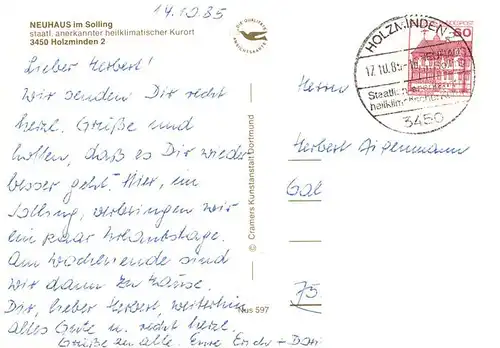 14.10.85
NEUHAUS im Solling
staatl. anerkannter heilklimatischer Kurort
3450 Holzminden 2
DIE QUALITÄTS
ANSICHTSKARTE
HOLZMINDEN 2
NEUHAUS
17.10.85-18
Staatlich
heilklim.
3450
BUNDESPOST
60
Lieber Herbert!
Wir senden Dir recht
herzl. Grüße und
hoffen, daß es Dir wieder
besser geht. Hier, im
Solling, verbringen wir
ein paar Urlaubstage.
Am Wochenende sind
wir dann zu Hause.
Dir, lieber Herbert, weiterhin
alles Gute u. recht herzl.
Grüße an alle. Eure Erich + Dori
Herrn
Herbert Aigenmann
Gal
75
© Cramers Kunstanstalt, Dortmund
Nus 597